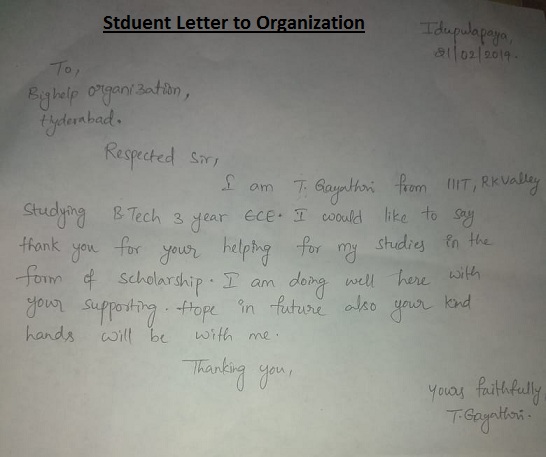 Stduent Letter to Organization
Idupulapaya,
21/02/2014.
To,
Bighelp organization,
Hyderabad.
Respected Sir,
I am T. Gayathri from IIIT, RKValley
Studying B Tech 3 year ECE. I would like to say
thank you for your helping for my studies in the
form of scholarship. I am doing well here with
your supporting. Hope in future also your kind
hands will be with me.
Thanking you,
yours faithfully,
T. Gayathri.